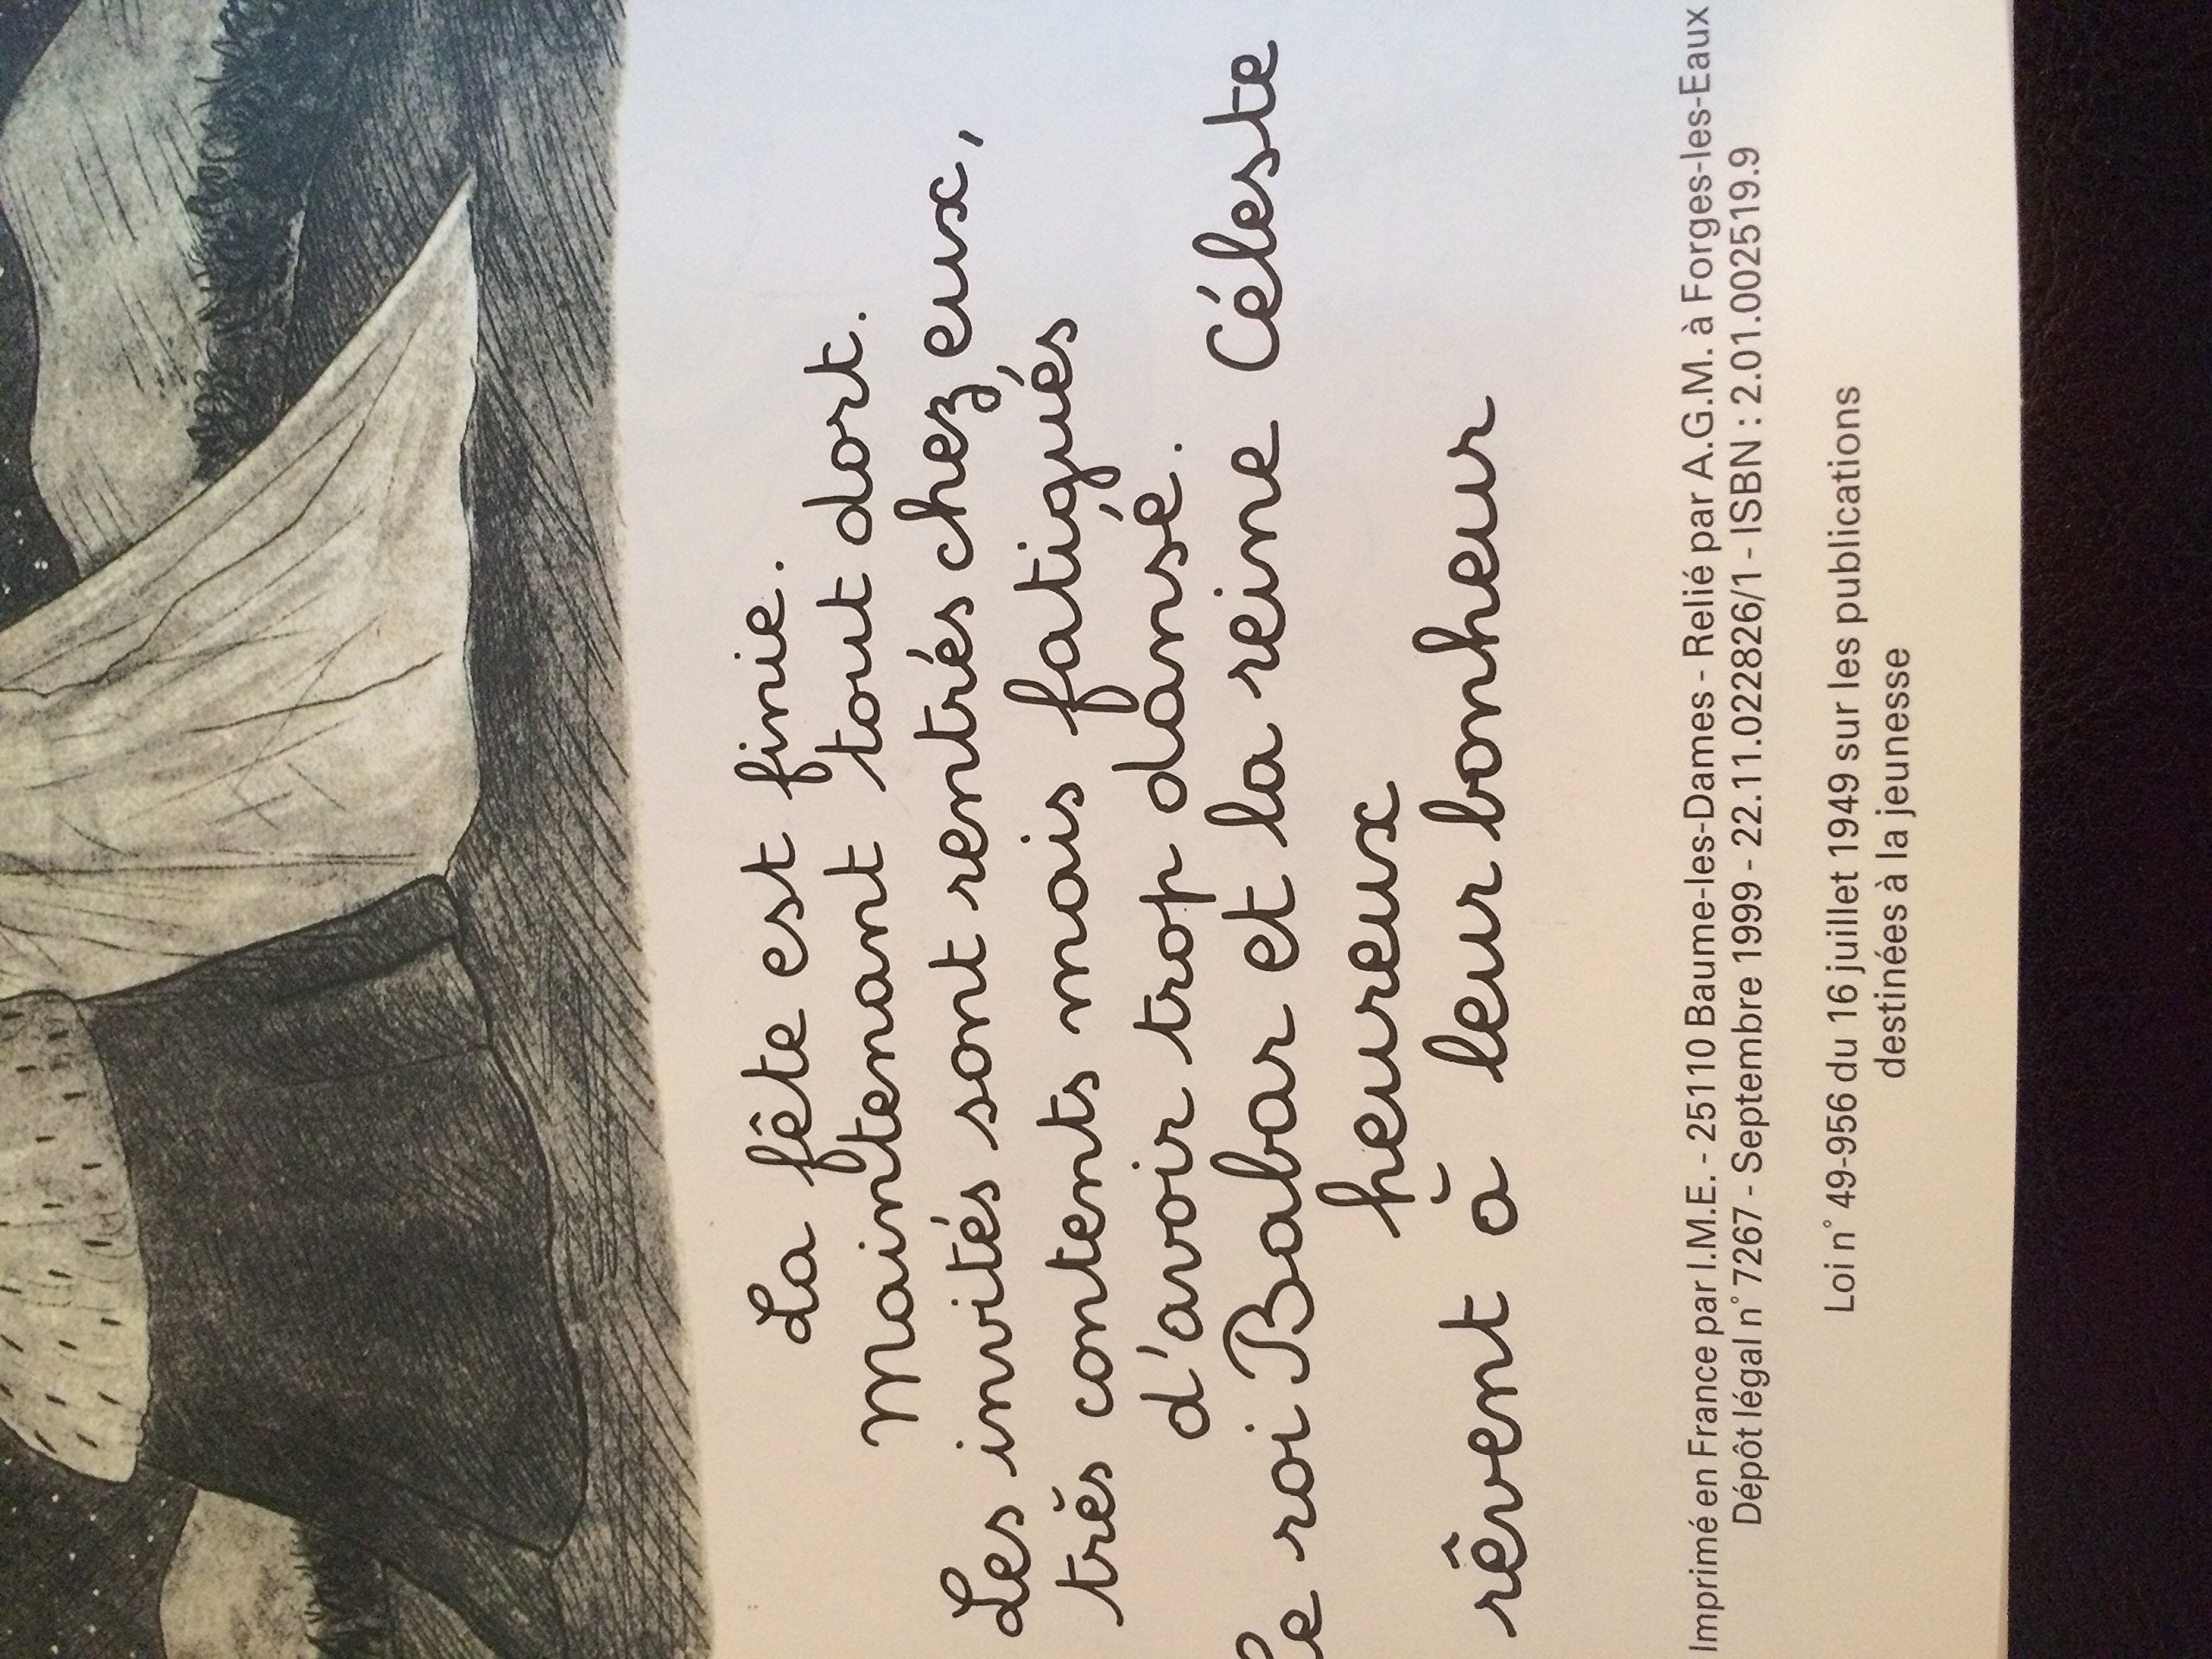 La fête est finie.
Maintenant tout dort.
Les invités sont rentrés chez eux,
très contents mais fatigués
d'avoir trop dansé.
Le roi Babar et la reine Céleste
heureux
rêvent à leur bonheur
Imprimé en France par I.M.E. - 25110 Baume-les-Dames - Relié par A.G.M. à Forges-les-Eaux
Dépôt légal n° 7267 - Septembre 1999 - 22.11.022826/1 - ISBN : 2.01.002519.9
Loi n° 49-956 du 16 juillet 1949 sur les publications
destinées à la jeunesse